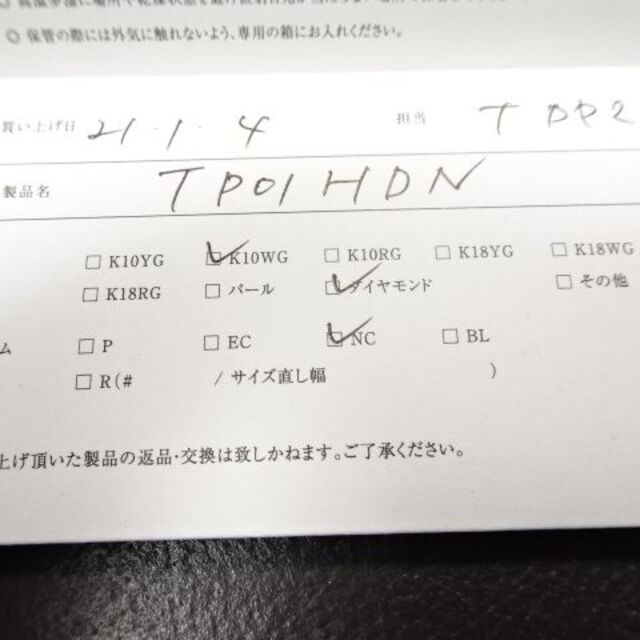 ◎ 保管の際には外気に触れないよう、専用の箱にお入れください。
買い上げ日 21・1・4 担当 T
製品名 TP01HDN
□ K10YG ☑ K10WG □ K10RG □ K18YG □ K18WG
□ K18RG □ パール ☑ ダイヤモンド □ その他
ム □ P □ EC ☑ NC □ BL
□ R(# / サイズ直し幅 )
上げ頂いた製品の返品・交換は致しかねます。ご了承ください。